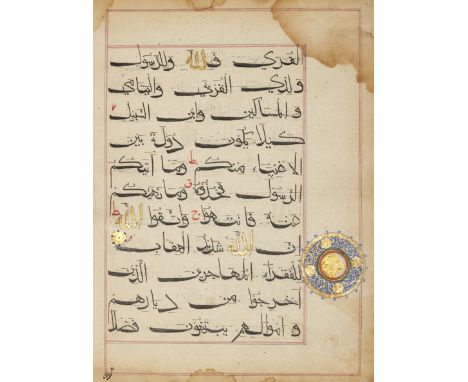 القرى فلله وللرسول
ولذي القربى واليتامى
والمساكين وابن السبيل
كيلا يكون دولة بين
الاغنياء منكم ط وما اتيكم
الرسول فخذوه ق وما نهيكم
عنه فانتهوا ج واتقوا الله ط
ان الله شديد العقاب
للفقراء المهاجرين الذين
اخرجوا من ديارهم
و اموالهم يبتغون فضلا